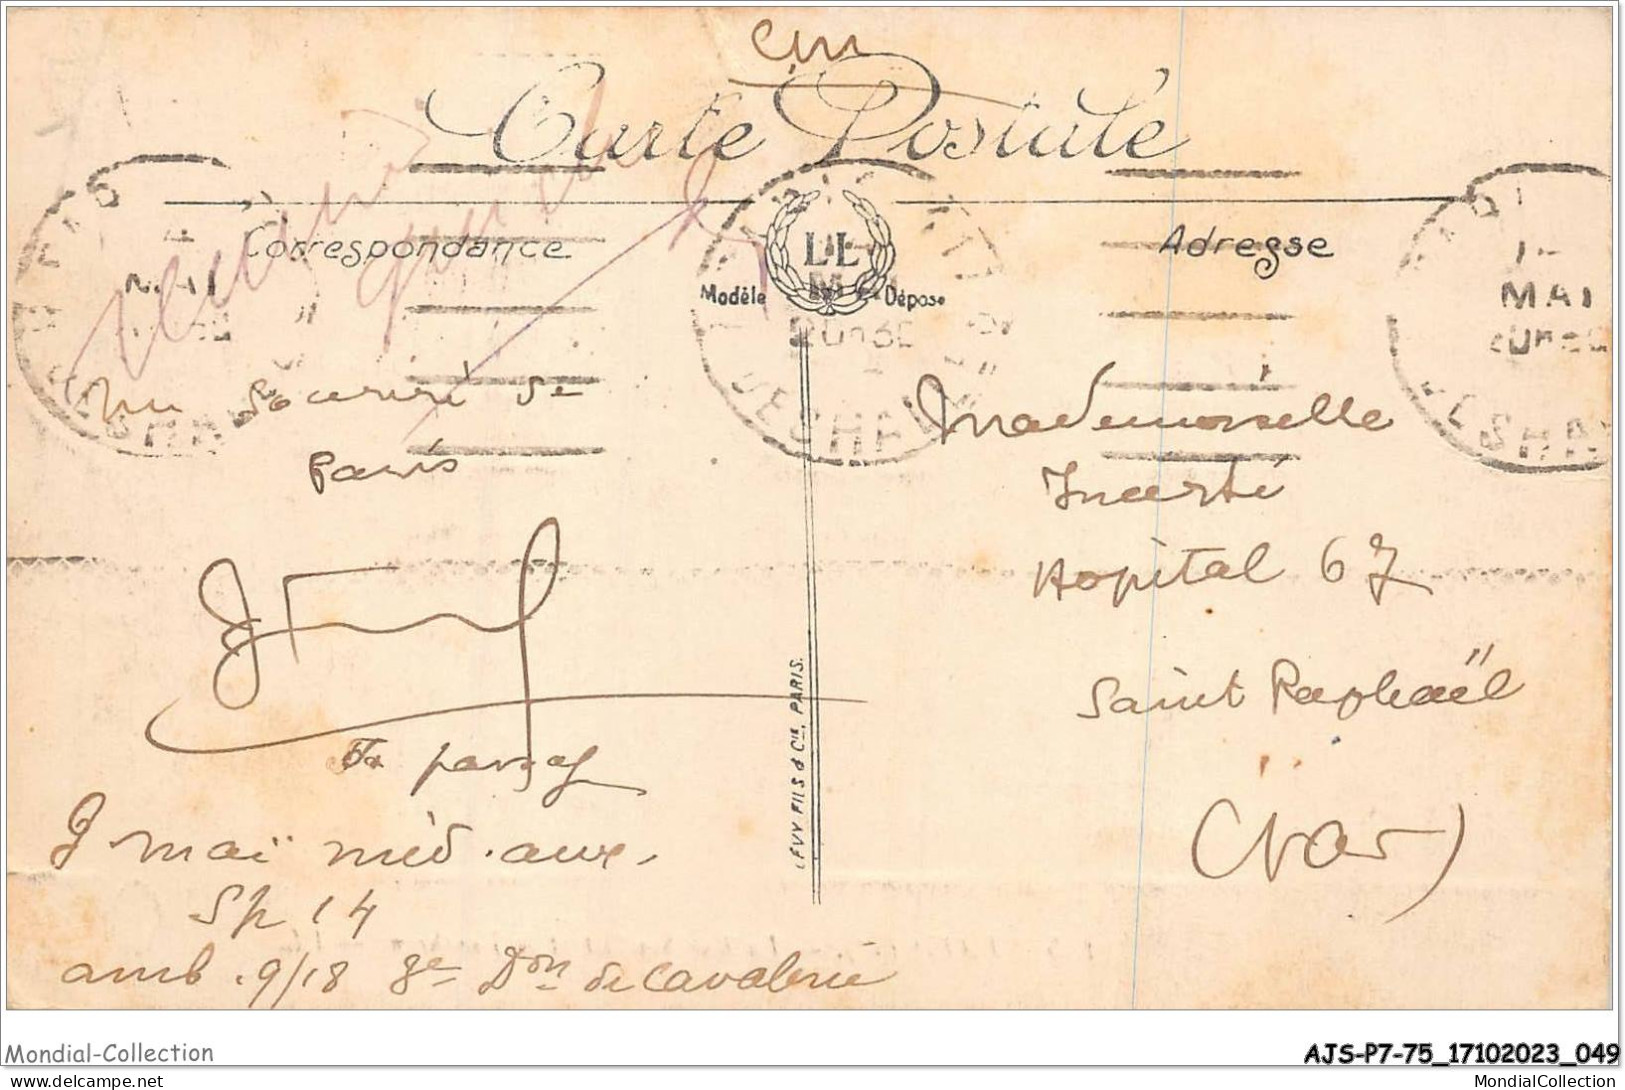 Carte Postale
Correspondance
Adresse
LL
Modèle
Déposé
MAI
PARIS
MAI
20h30
DESHA
un souvenir de
Paris
Mademoiselle
Hopital 67
Saint Raphaël
(Var)
LEVY FILS & Cie, PARIS.
J mai méd. aux.
Sp 14
amb. 9/18 8e Don de Cavalerie
Mondial-Collection
AJS-P7-75_17102023_049
delcampe.net
MondialCollection